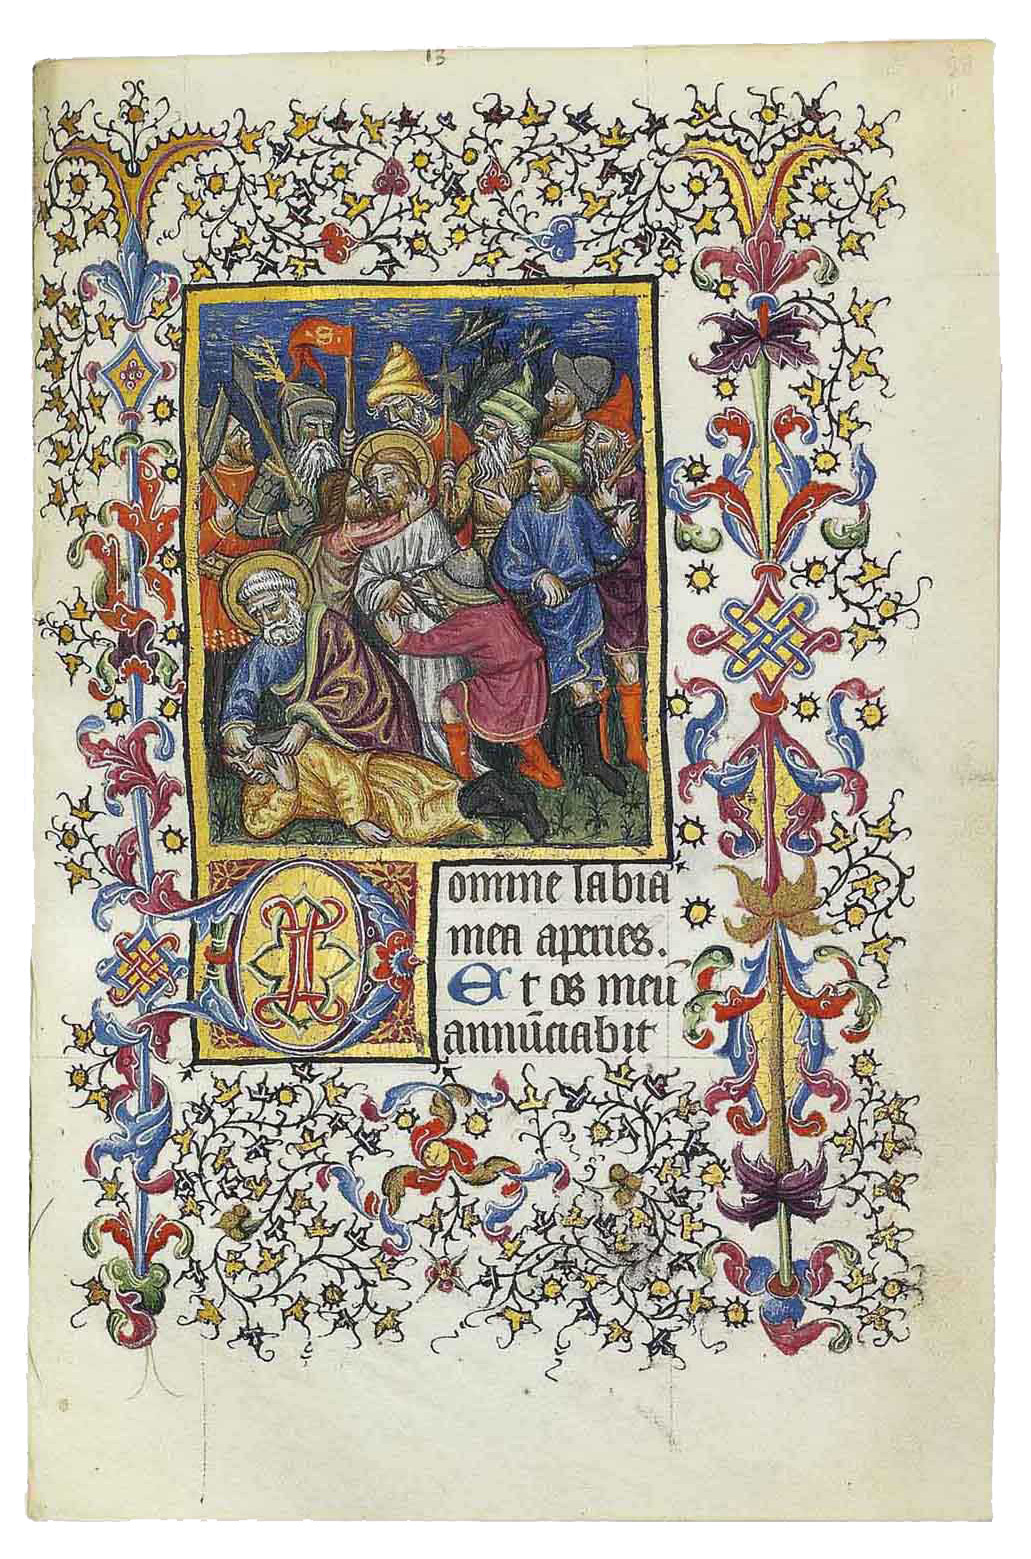 13
Domine labia
mea aperies.
Et os meū
annūciabit